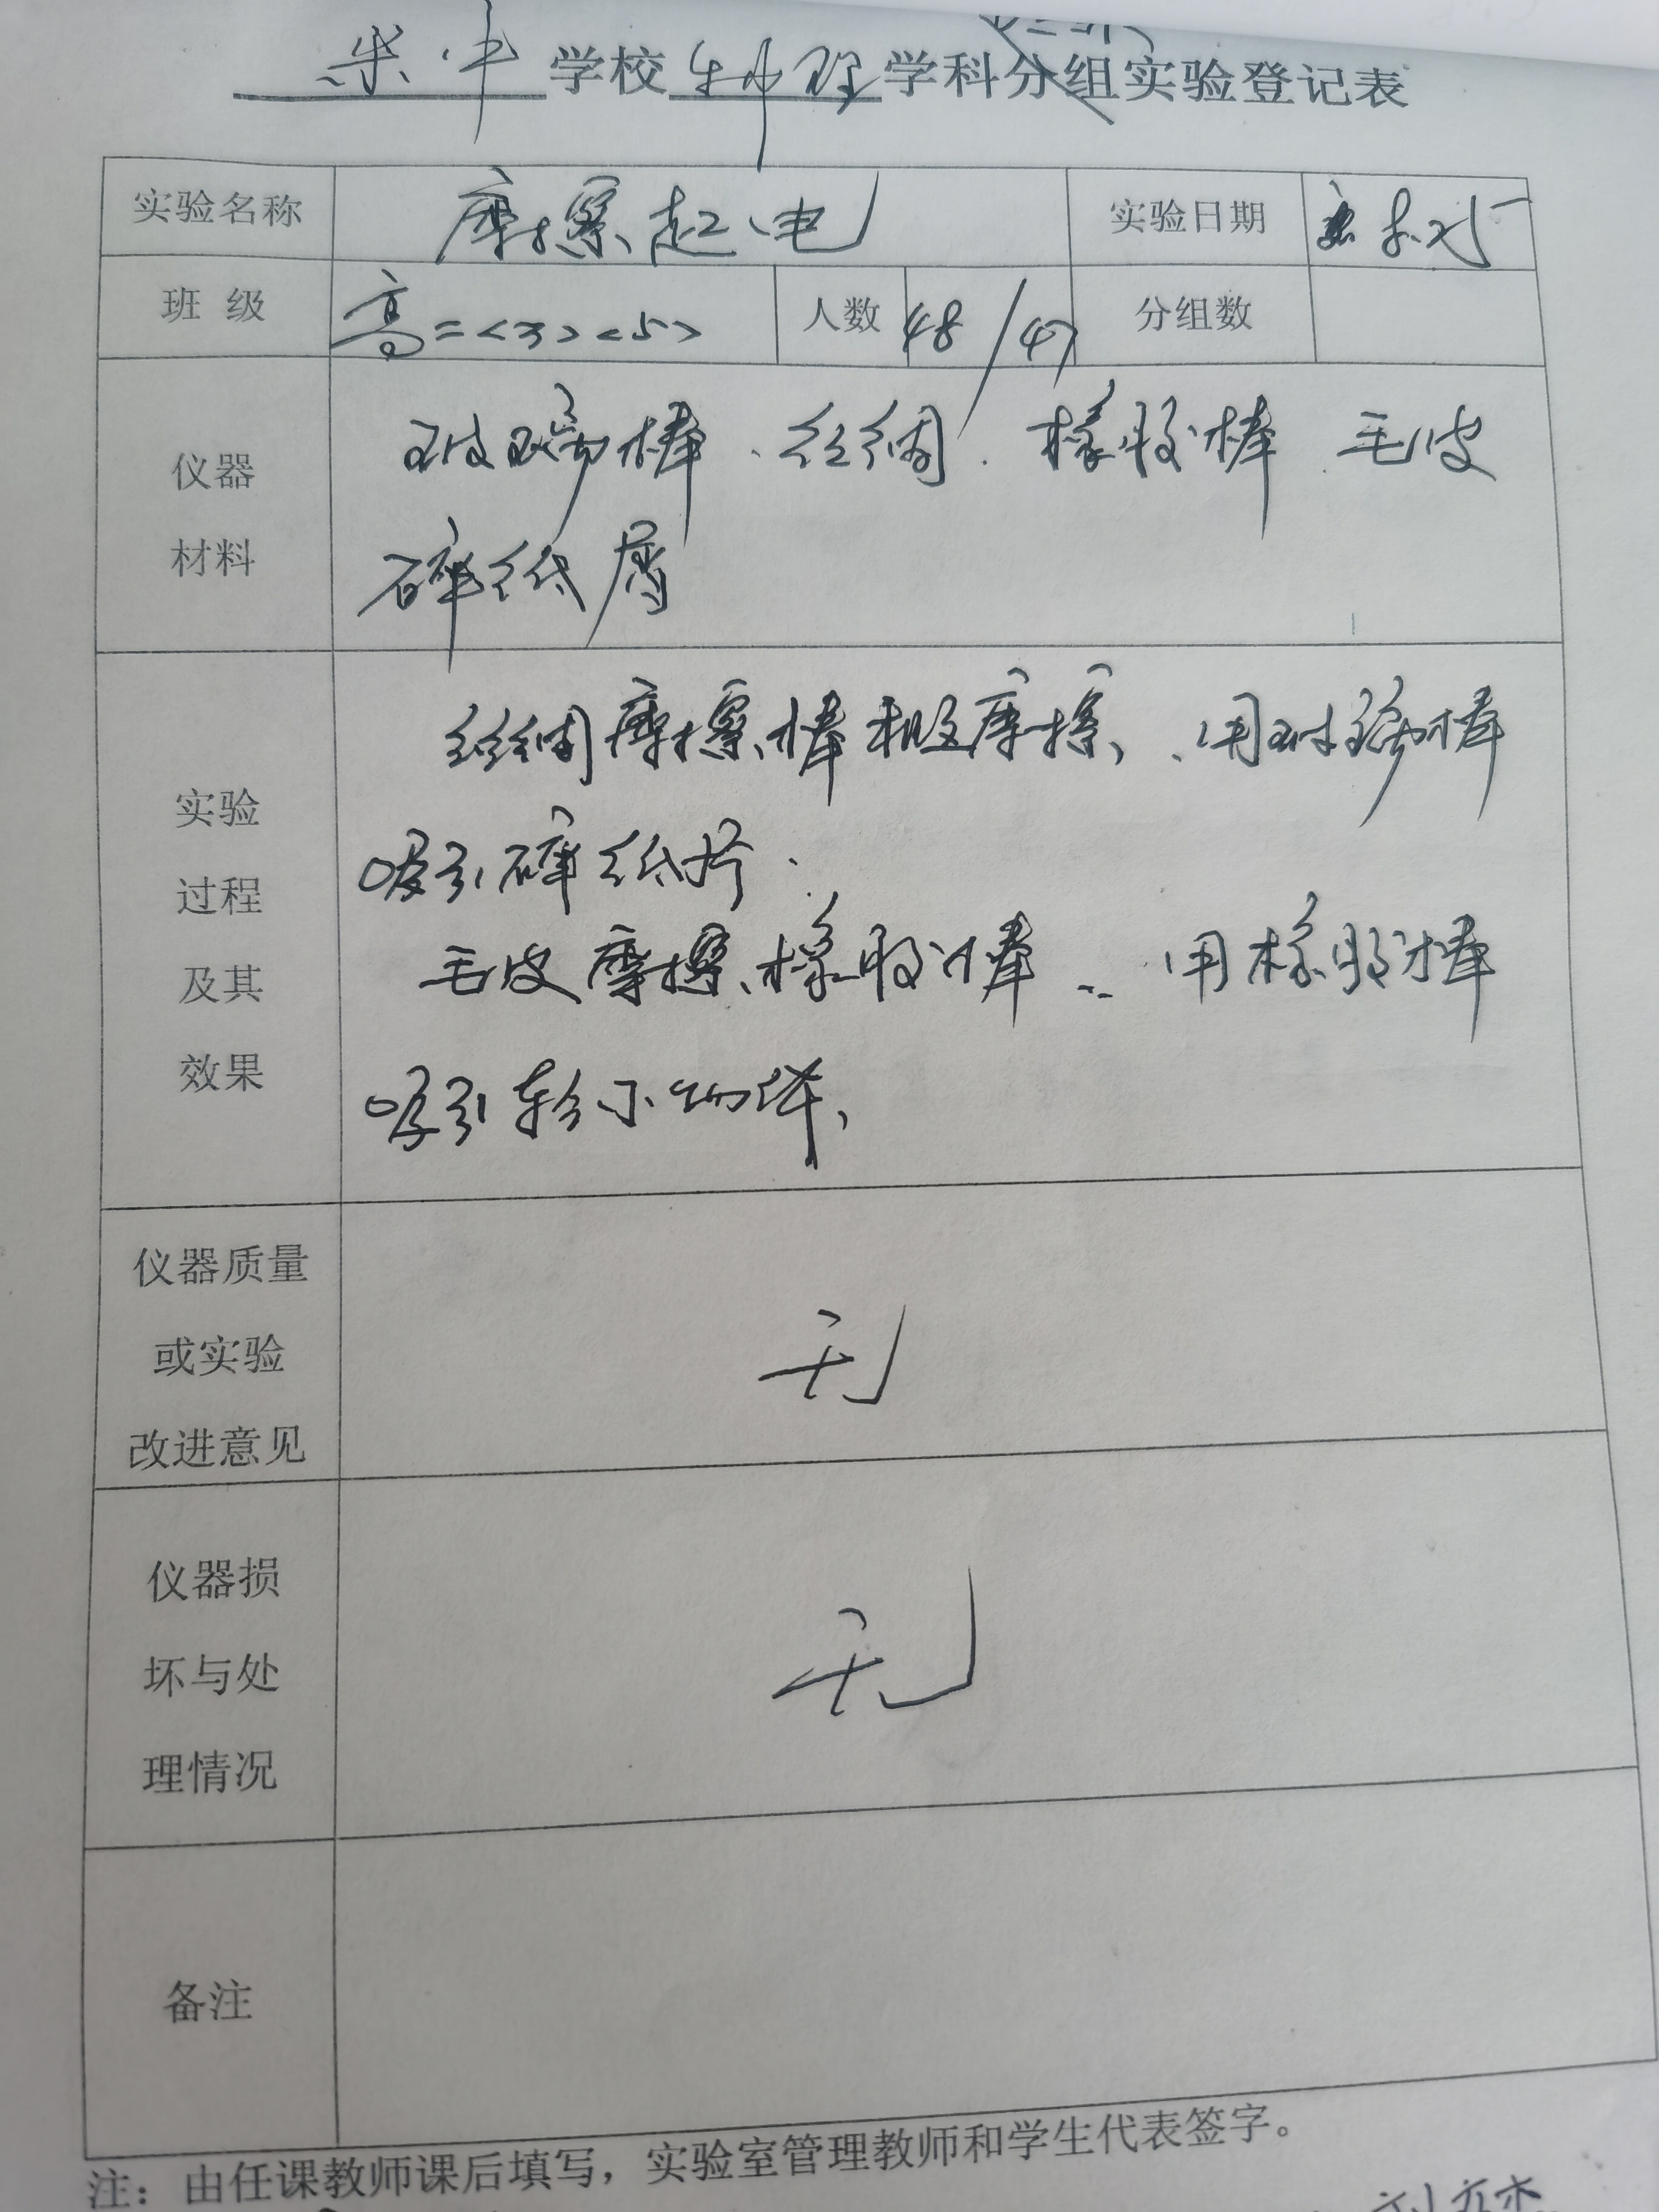 学校物理学科分组实验登记表
实验名称 摩擦起电 实验日期
班 级 高二<3><5> 人数 48/47 分组数
仪器
材料
玻璃棒、丝绸、橡胶棒 毛皮
碎纸屑
实验
过程
及其
效果
丝绸摩擦棒相互摩擦、用玻璃棒
吸引碎纸片.
毛皮摩擦橡胶棒 用橡胶棒
吸引轻小物体、
仪器质量
或实验
改进意见
无
仪器损
坏与处
理情况
无
备注
注：由任课教师课后填写，实验室管理教师和学生代表签字。